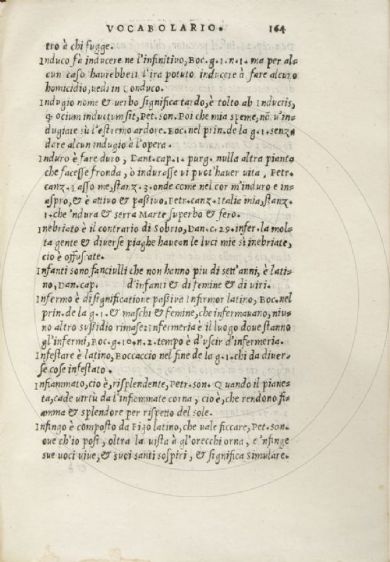 VOCABOLARIO. 164
tro à chi fugge.
Induco fà inducere ne l'infinitivo, Boc. g. 1. n. 1. ma per al
cun caso haurebbesi l'ira potuto inducere à fare alcuno
homicidio, vedi in Conduco.
Indugio nome & verbo significa tardo, è tolto ab Induciis,
q; ocium inductum sit, Pet. son. Poi che mia speme, nō. n'in
dugiate sù l'estremo ardore. Boc. nel prin. de la g. 1. senza
dare alcun indugio à l'opera.
Induro è fare duro, Dant. cap. 1. purg. nulla altra pianta
che facesse fronda, ò indurasse vi puot'hauer vita, Petr.
canz. Lasso me, stanz. 3. onde come nel cor m'induro e in
aspro, & è attivo & passivo, Petr. canz. Italia mia, stanz.
1. che 'ndura & serra Marte superbo & fero.
Inebriato è il contrario di Sobrio, Dan. c. 29. infer. la mol
ta gente & diverse piaghe haveon le luci mie sì inebriate,
cio è offuscate.
Infanti sono fanciulli che non hanno piu di sett'anni, è lati
no, Dan. cap. d'infanti & di femine & di viri.
Infermo è di significatione passiva Infirmor latino, Boc. nel
prin. de la g. 1. & maschi & femine, che infermavano, niu
no altro sussidio rimase: Infermeria è il luogo doue stanno
gl'infermi, Boc. g. 10. n. 2. tempo è d'uscir d'infermeria.
Infestare è latino, Boccaccio nel fine de la g. 1. chi da diver
se cose infestato.
Infiammato, cio è, risplendente, Petr. son. Quando il piane
ta, cade virtù da l'infiammate corna, cio è, che rendono fi
amma & splendore per rispetto del sole.
Infingo è composto da Figo latino, che vale ficcare, Pet. son.
oue ch'io posi, oltra la vista à gl'orecchi orna, e 'nfinge
sue voci vive, & suoi santi sospiri, & significa Simulare.